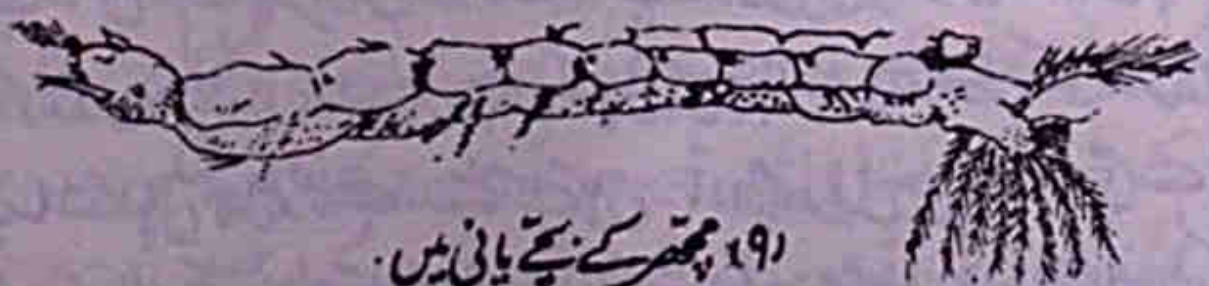 (۹) مچھر کے بچے پانی میں.